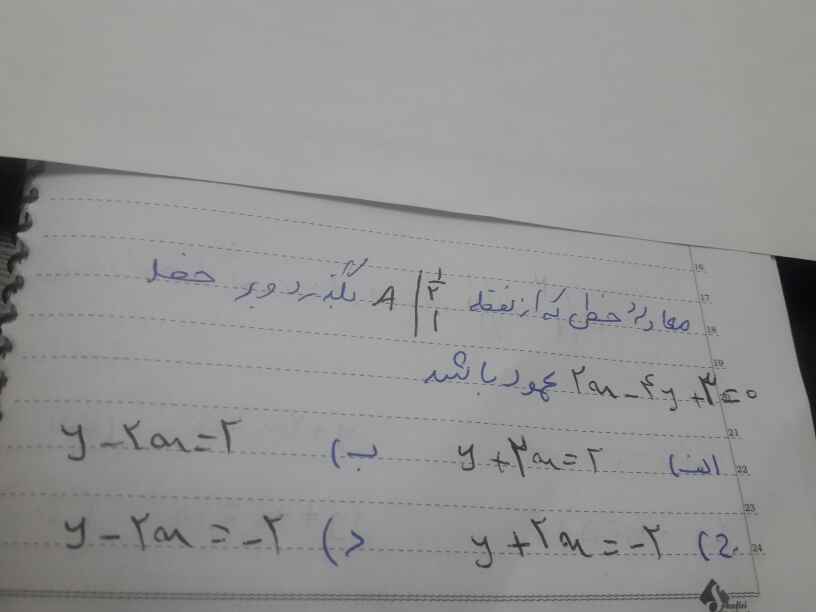 معادله خطی که از نقطه A | ۱/۲ ۱ بگذرد و بر خط
۲x - ۴y + ۳ = ۰ عمود باشد
الف) y + ۲x = ۲ ب) y - ۲x = ۲
ج) y + ۲x = -۲ د) y - ۲x = -۲
16
17
18
19
21
22
23
24